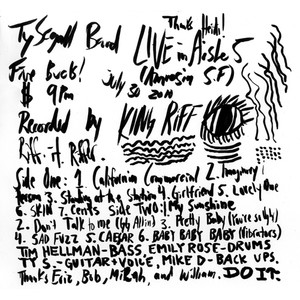 Ty Segall Band Thanks Heidi!
LIVE in Aisle 5
Five Bucks! (Amnesia S.F)
$ 9pm July 30 2010
Recorded by KING RIFF
Riff-A-Raffer
Side One: 1. California Commercial 2. Imaginary
Person 3. Standing at the Station 4. Girlfriend 5. Lovely One
6. SKIN 7. Cents Side TWO: 1 My Sunshine
2. Don't Talk to me (GG Allin) 3. Pretty Baby (You're so ugly)
4. SAD FUZZ 5. CAESAR 6. BABY BABY BABY (Vibrators)
TIM HELLMAN-BASS EMILY ROSE-DRUMS
TY S. - GUITAR + VOICE, MIKE D-BACK UPS.
Thanks Eric, Bob, MiRah, and William. DO IT.